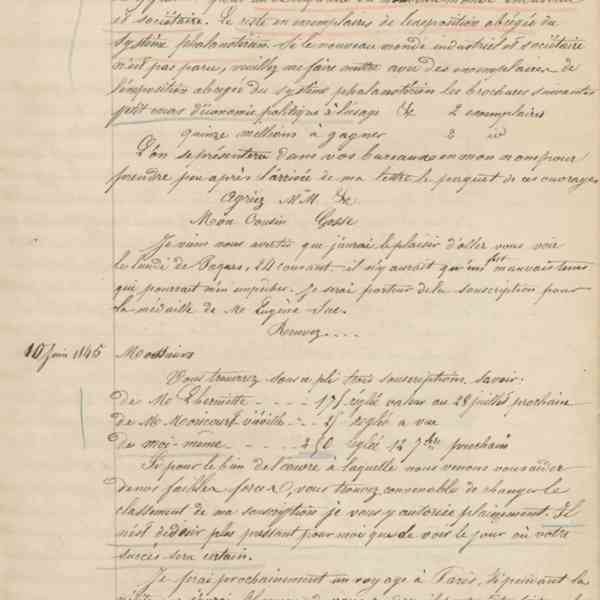 et sociétaire. Le reste en exemplaires de l'exposition abrégée du
système phalanstérien. Si le nouveau monde industriel et sociétaire
n'est pas paru, veuillez me faire mettre avec des exemplaires de
l'exposition abrégée du système phalanstérien les brochures suivantes
petit cours d'économie politique à l'usage &c 2 exemplaires
quinze millions à gagner 2 id
L'on se présentera dans vos bureaux en mon nom pour
prendre peu après l'arrivée de ma lettre le paquet de ces ouvrages
Agréez M.M. &c
Mon Cousin Gosse
Je viens vous avertir que j'aurais le plaisir d'aller vous voir
le lundi de Pâques, 24 courant. il n'y aurait qu'un fort mauvais tems
qui pourrait m'en empêcher. Je serai porteur de la souscription pour
la médaille de Mr Eugène Sue.
Recevez....
10 Juin 1845 Messieurs
Vous trouverez sous ce pli trois souscriptions, savoir:
de Mr Lhermitte - - - - 17f réglé valeur au 28 juillet prochain
de Mr Moricourt - - - réglé à vue
de moi-même - - - - réglé 12 7bre prochain
Si pour le bien de l'œuvre à laquelle nous venons vous aider
de nos faibles forces, vous trouvez convenable de changer le
classement de ma souscription je vous y autorise pleinement. Il
n'est désir plus pressant pour moi que de voir le jour où votre
succès sera certain.
Je ferai prochainement un voyage à Paris, si pendant la